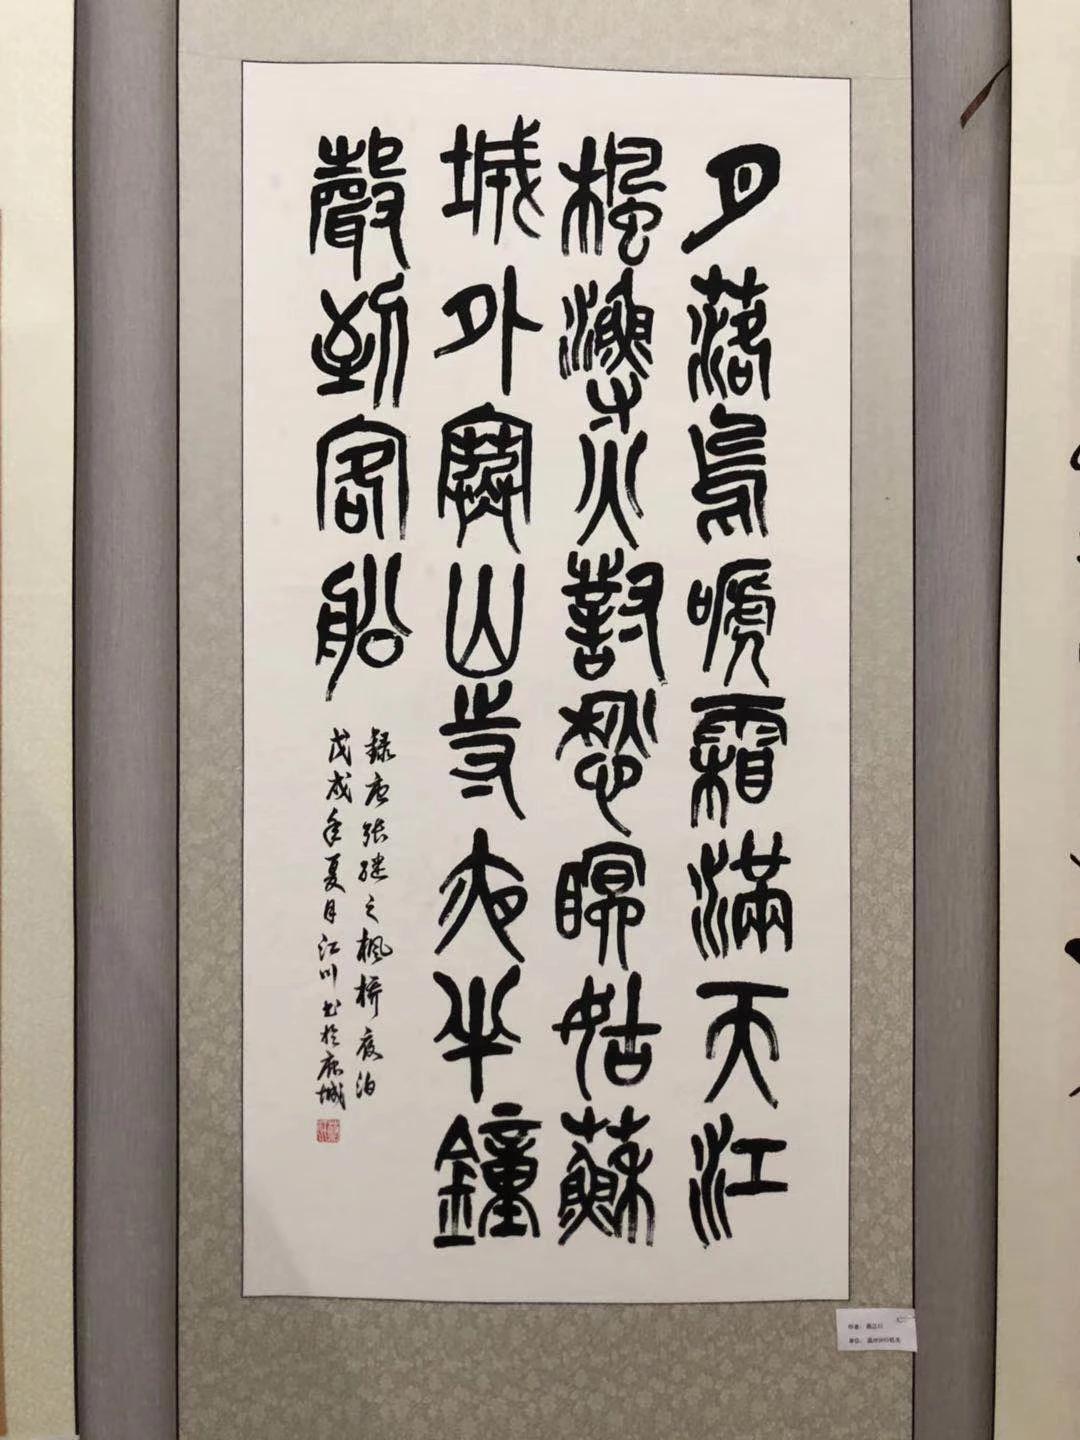 月落烏嗁霜滿天江
楓漁火對愁瞑姑蘇
城外寒山寺夜半鐘
聲到客船
録唐張繼之楓橋夜泊
戊戌年夏月江川书於鹿城
作者：
单位：